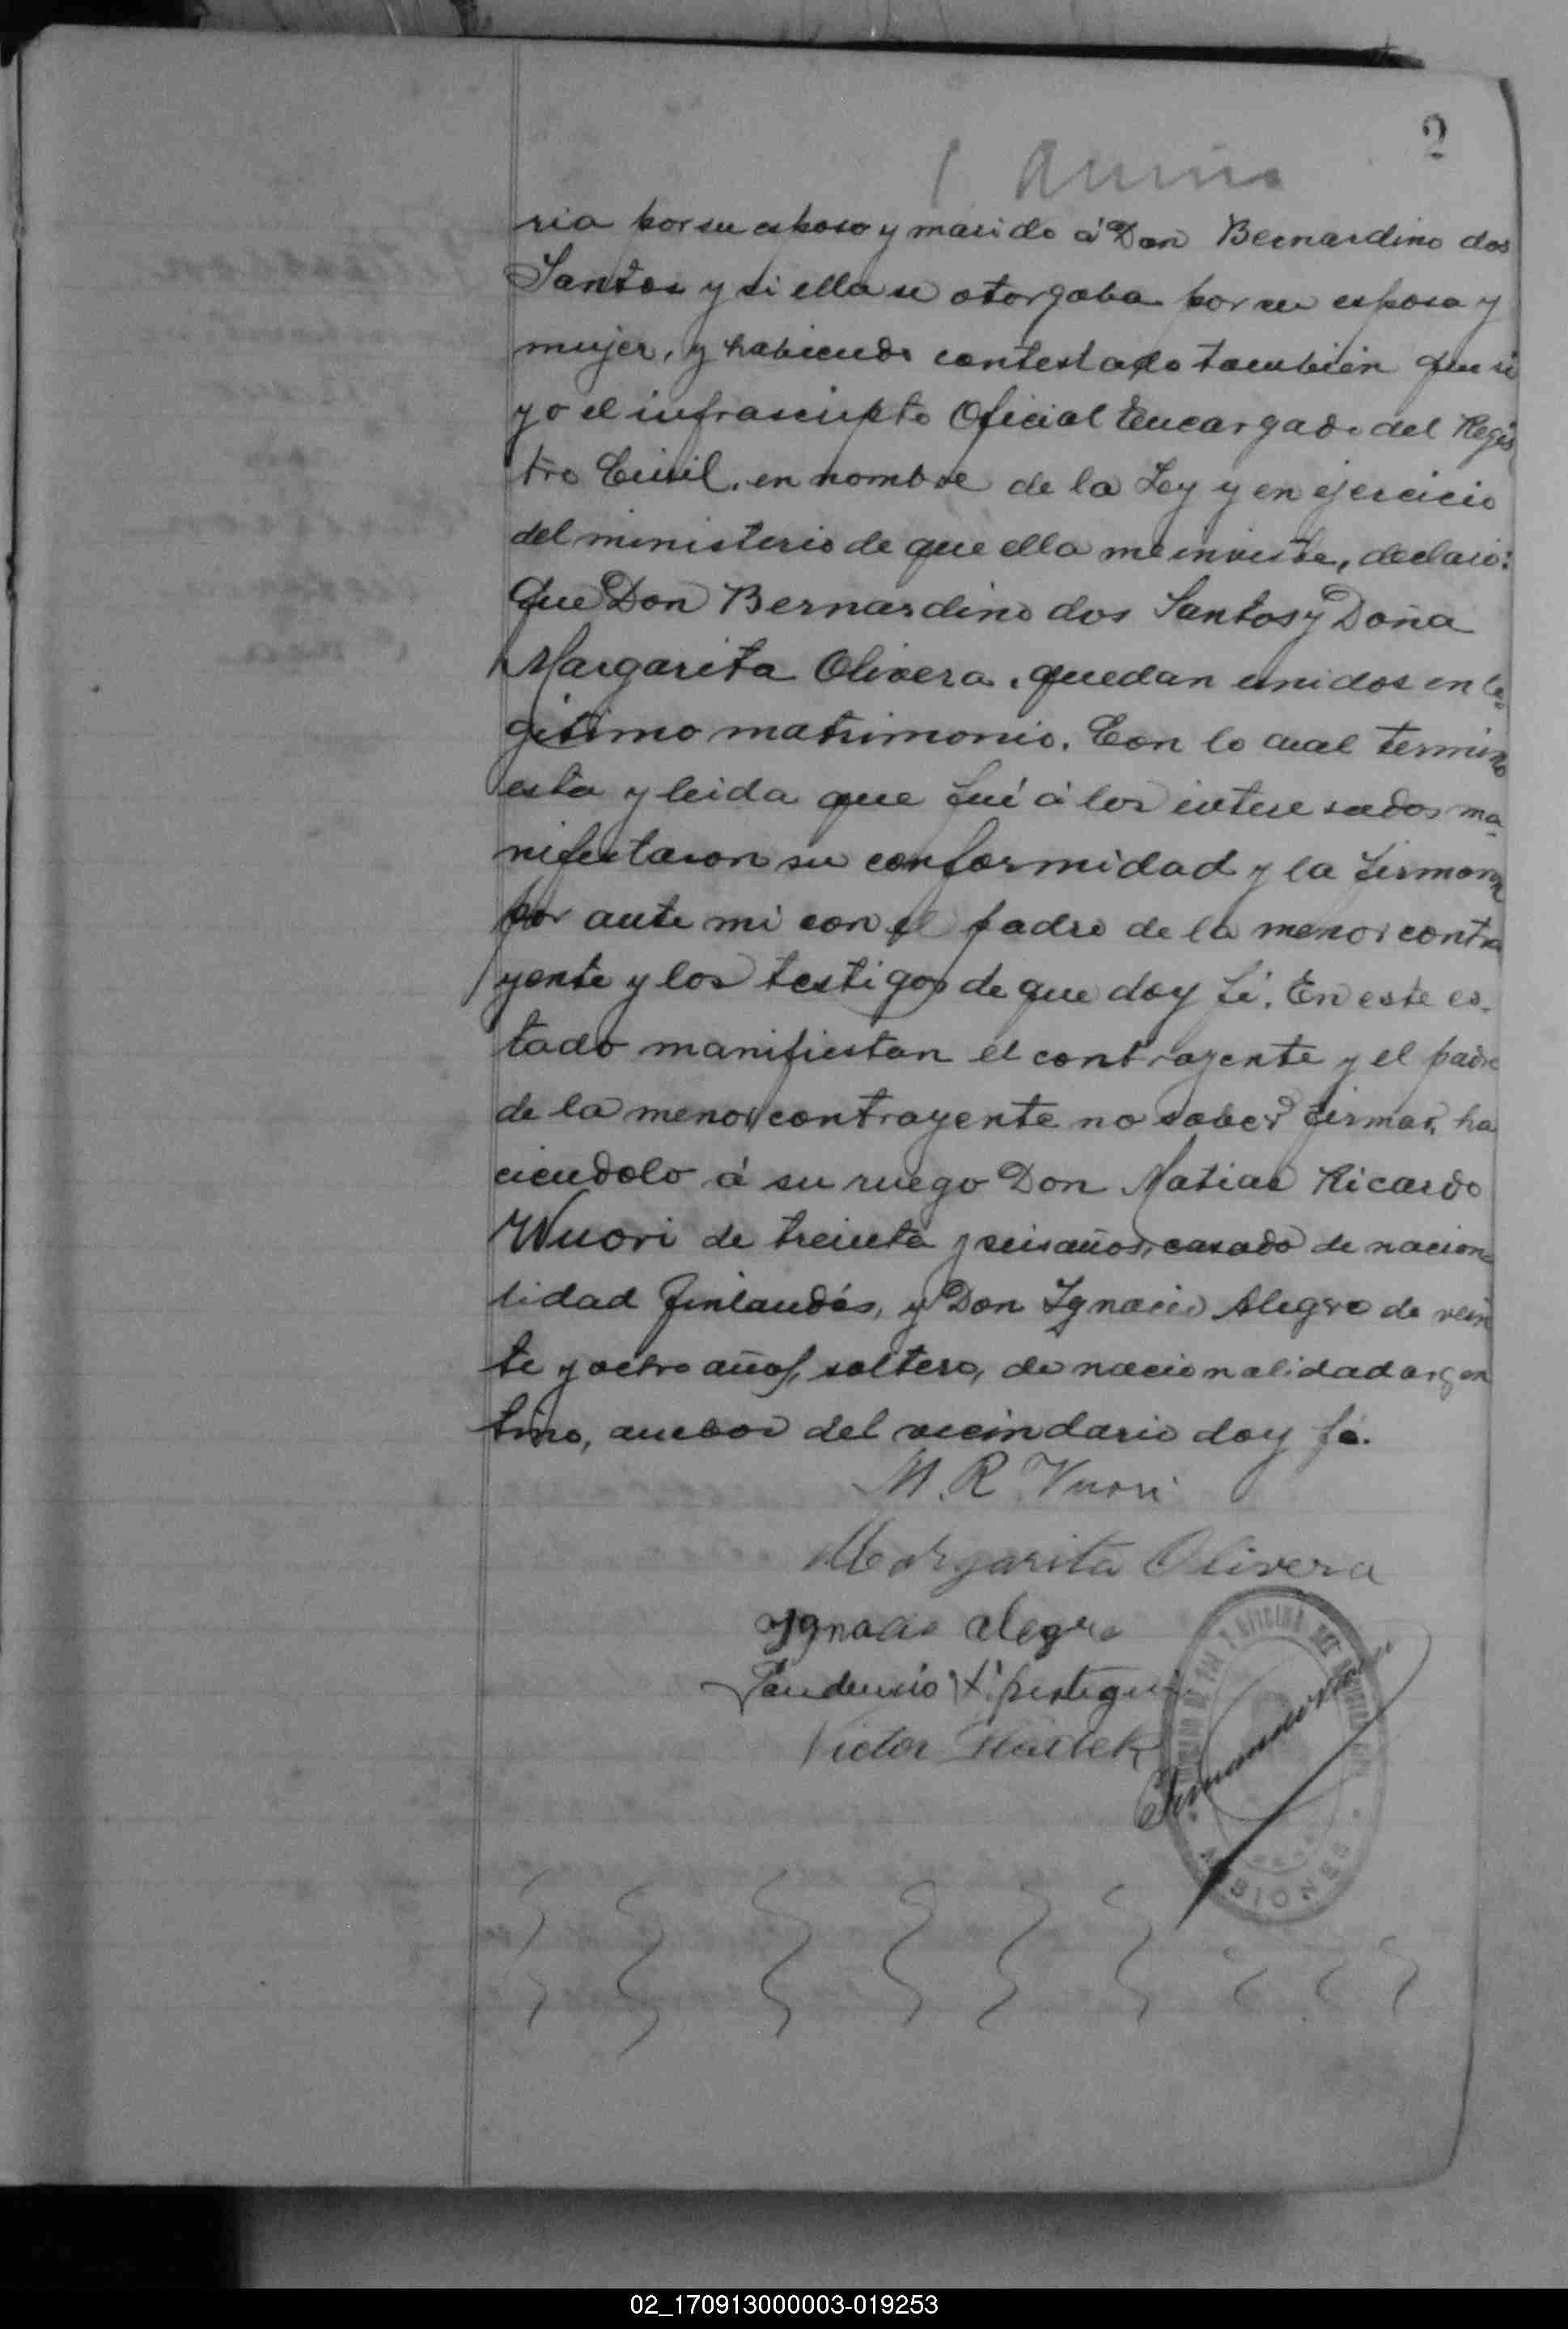 2
ria por su esposo y marido á Don Bernardino dos
Santos y si ella se otorgaba por su esposa y
mujer, y habiendo contestado tambien que si
yo el infrascripto Oficial Encargado del Regis
tro Civil, en nombre de la Ley y en ejercicio
del ministerio de que ella me inviste, declaro:
Que Don Bernardino dos Santos y Doña
Margarita Olivera, quedan unidos en le
gitimo matrimonio. Con lo cual termino
esta y leida que fué á los interesados ma
nifestaron su conformidad y la firmaron
por ante mi con el padre de la menor contra
yente y los testigos de que doy fé. En este es
tado manifiestan el contrayente y el padre
de la menor contrayente no saber firmar, ha
ciendolo á su ruego Don Matias Ricardo
Wuori de treinta y seis años, casado de naciona
lidad finlandés, y Don Ygnacio Alegre de vein
te y ocho años, soltero, de nacionalidad argen
tino, ambos del vecindario doy fé.
M. R. Vuori
Margarita Olivera
Ygnacio Alegre
Victor
OFICINA DEL
MISIONES
02_170913000003-019253